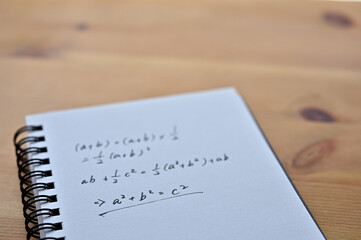 (a+b) × (a+b) × 1/2
= 1/2 (a+b)²
ab + 1/2 c² = 1/2 (a²+b²) + ab
⇒ a² + b² = c²